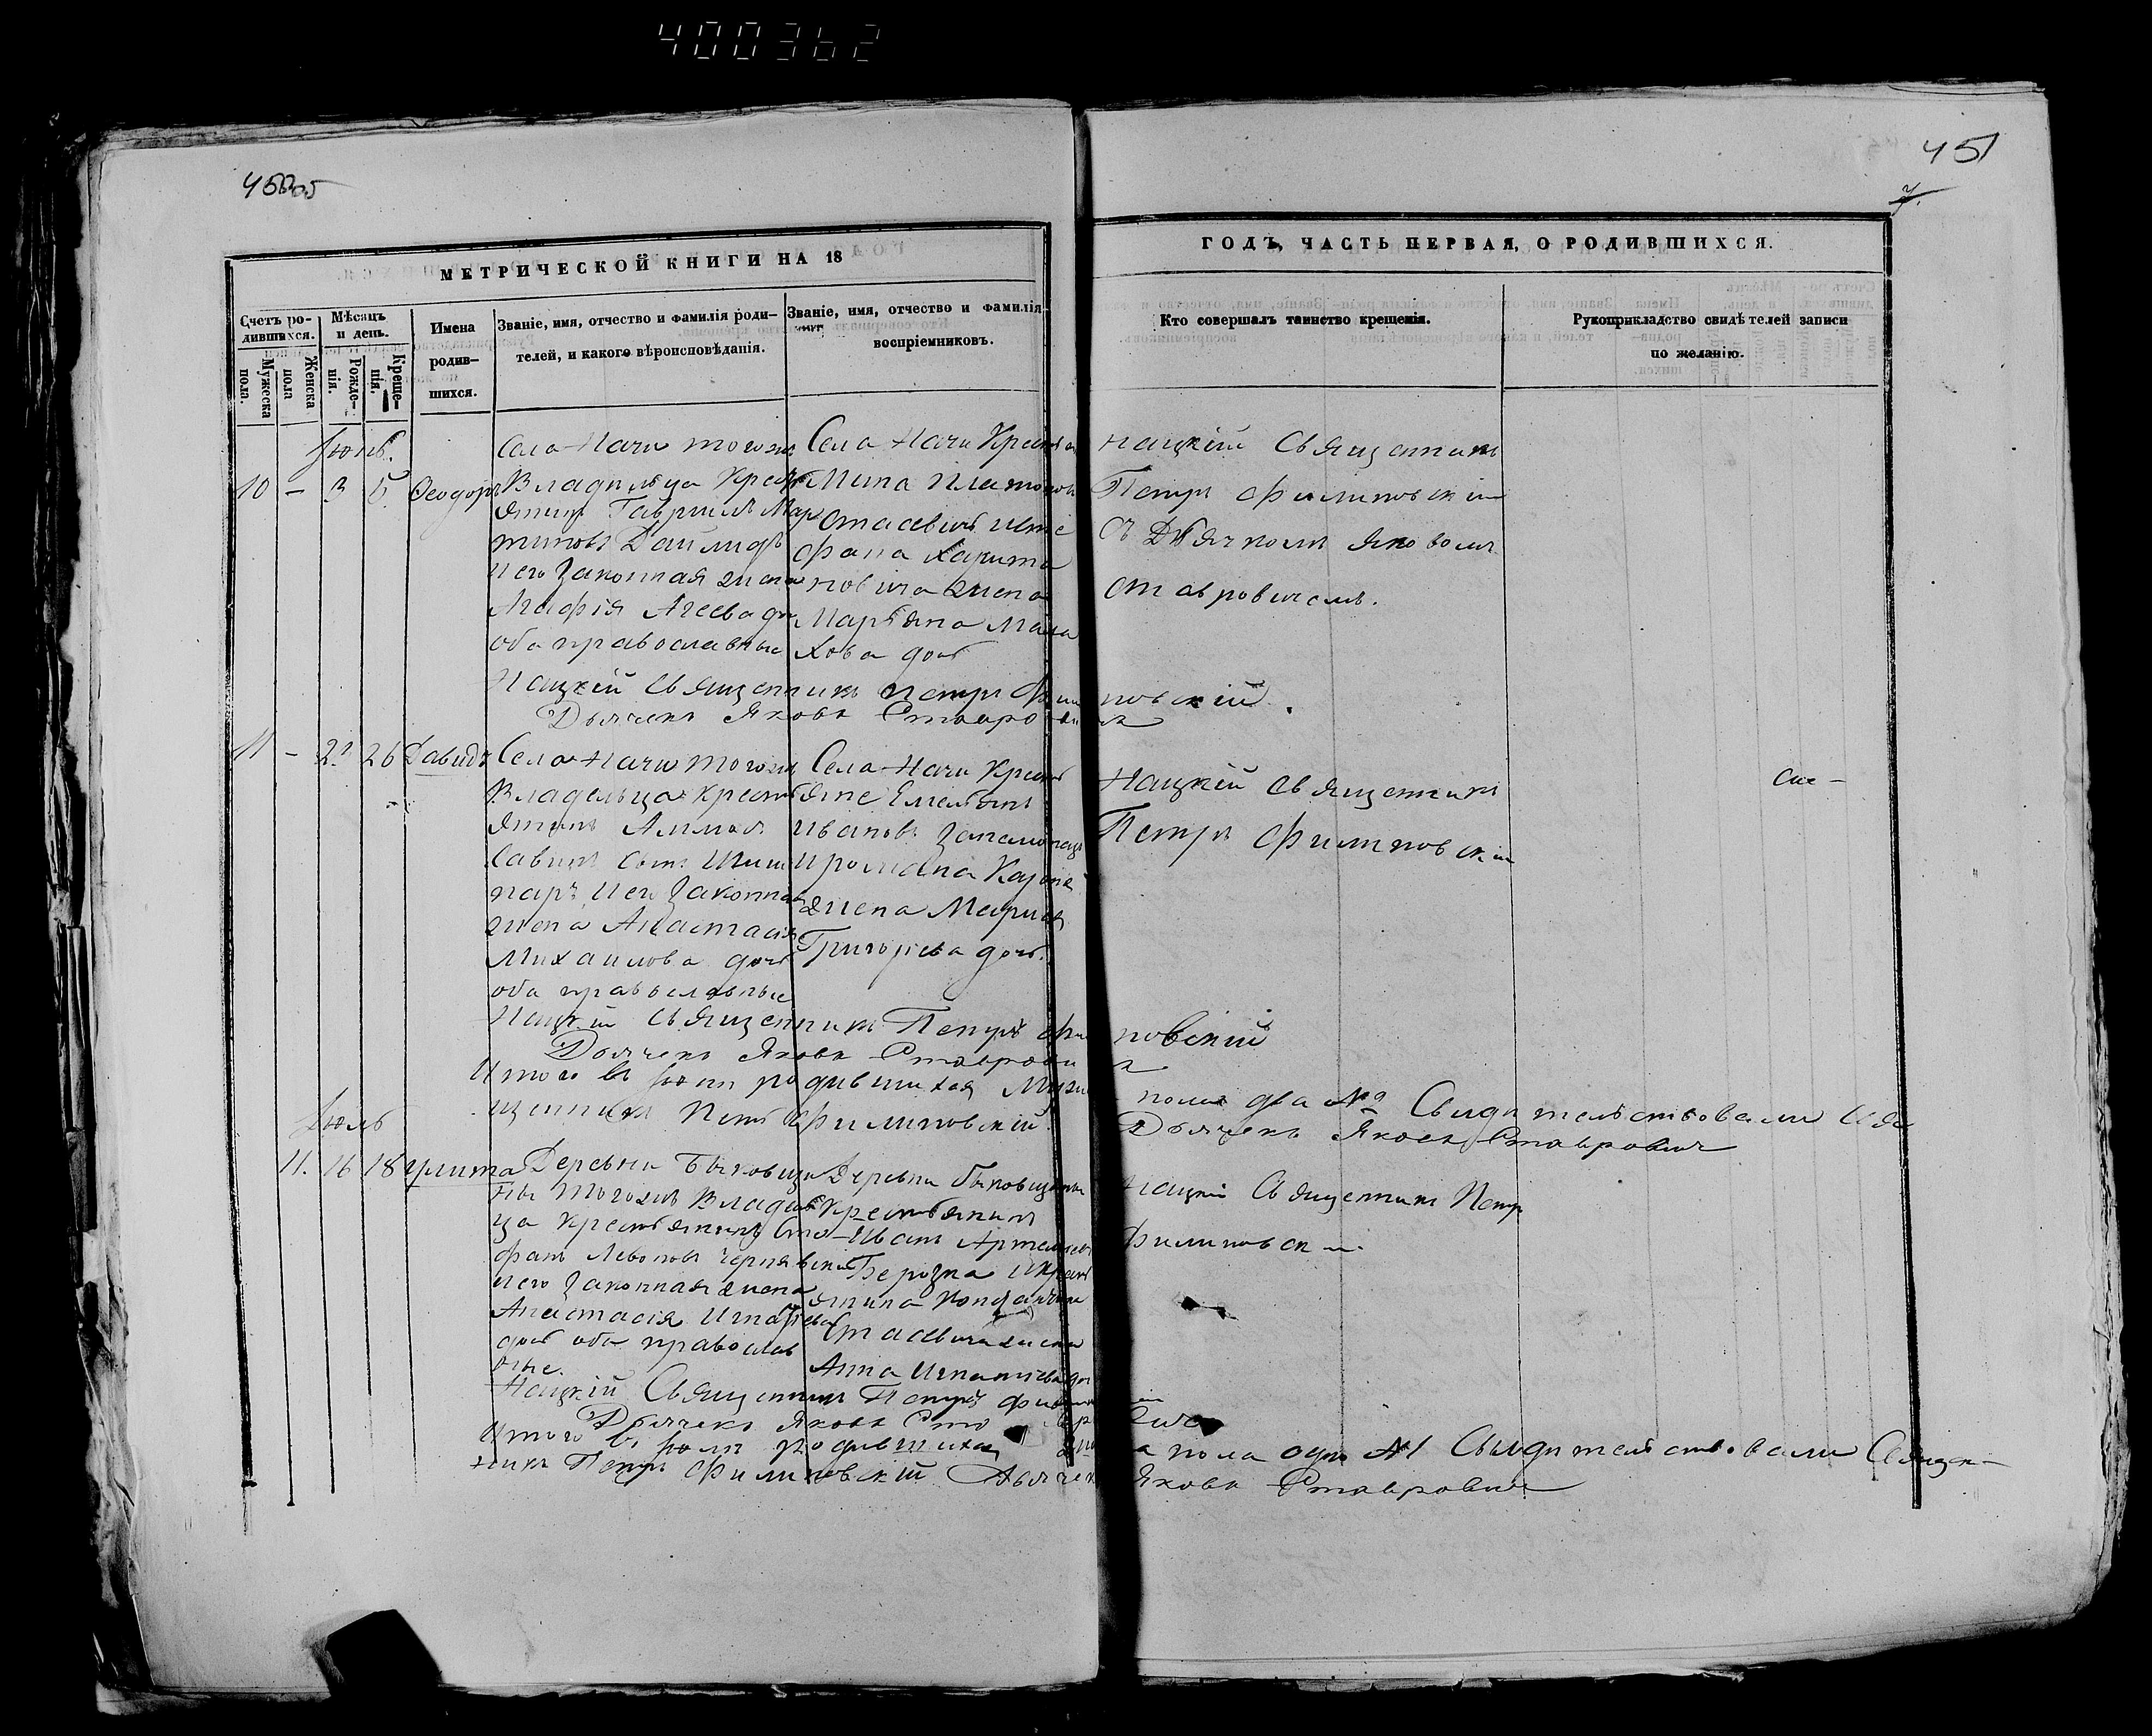 400362
450об
451
7.
МЕТРИЧЕСКОЙ КНИГИ НА 18
ГОДЪ, ЧАСТЬ ПЕРВАЯ, О РОДИВШИХСЯ.
Счетъ ро-
дившихся.
Мужеска
пола.
Женска
пола
Мѣсяцъ
и день.
Рожде-
нія.
Креще-
нія.
Имена
родив-
шихся.
Званіе, имя, отчество и фамилія роди-
телей, и какого вѣроисповѣданія.
Званіе, имя, отчество и фамилія
воспріемниковъ.
Кто совершалъ таинство крещенія.
Рукоприкладство свидѣтелей записи
по желанію.
Іюнь.
10 - 3 5 Ѳеодоръ
Села Начи того же
Владельца Кресть
янинъ Гавріилъ Мар
тиновъ Дайлидъ
и его законная жена
Агафія Агеева дочь
оба православные
Села Начи Крестья
Мина Платонов
Стасевичь и Сте
фана Харито
новича жена
Марьяна Мала
хова дочь
Нацкій Священникъ
Петръ Филиповскій
съ Дьячкомъ Яковомъ
Ставровичемъ.
Нацкій Священникъ Петръ Фили повскій.
Дьячекъ Яковъ Ставрови
11 - 21 26 Давидъ
Села Начи того же
Владельца Кресть
янинъ
Савинъ сынъ
и его законная
жена Анастасія
Михаилова дочь
оба православные
Села Начи Кресть
яне Емельянъ
Ивановъ
и Романа
жена Марія
Григорьева дочь.
Нацкій Священникъ
Петръ Филиповскій
Нацкій Священникъ Петръ Фи повскій
Дьячекъ Яковъ Ставрови
Итого въ Іюнѣ родившихся Муж пола два №2 Свидѣтельствовали
щенникъ Петръ Филиповскій Дьячекъ Яковъ Ставровичъ
Іюль
11. 16 18 Улита
Деревни Быковщи
ны того же Владель
ца Крестьянинъ Сте
фанъ Левоновъ Чернявскій
и его законная жена
Анастасія Игнатіева
дочь оба православ
ные.
Деревни Быковщины
Крестьянинъ
Иванъ Артемьев
Березка и Кресть
янина
Стасевича жена
Анна Игнатіева до
Нацкій Священникъ Петр
Филиповскій
Нацкій Священникъ Петръ Фили
Дьячекъ Яковъ Ста
Итого въ Іюлѣ родившихся пола одна №1 Свидѣтельствовали Священ-
никъ Петръ Филиповскій Дьячекъ Яковъ Ставровичъ